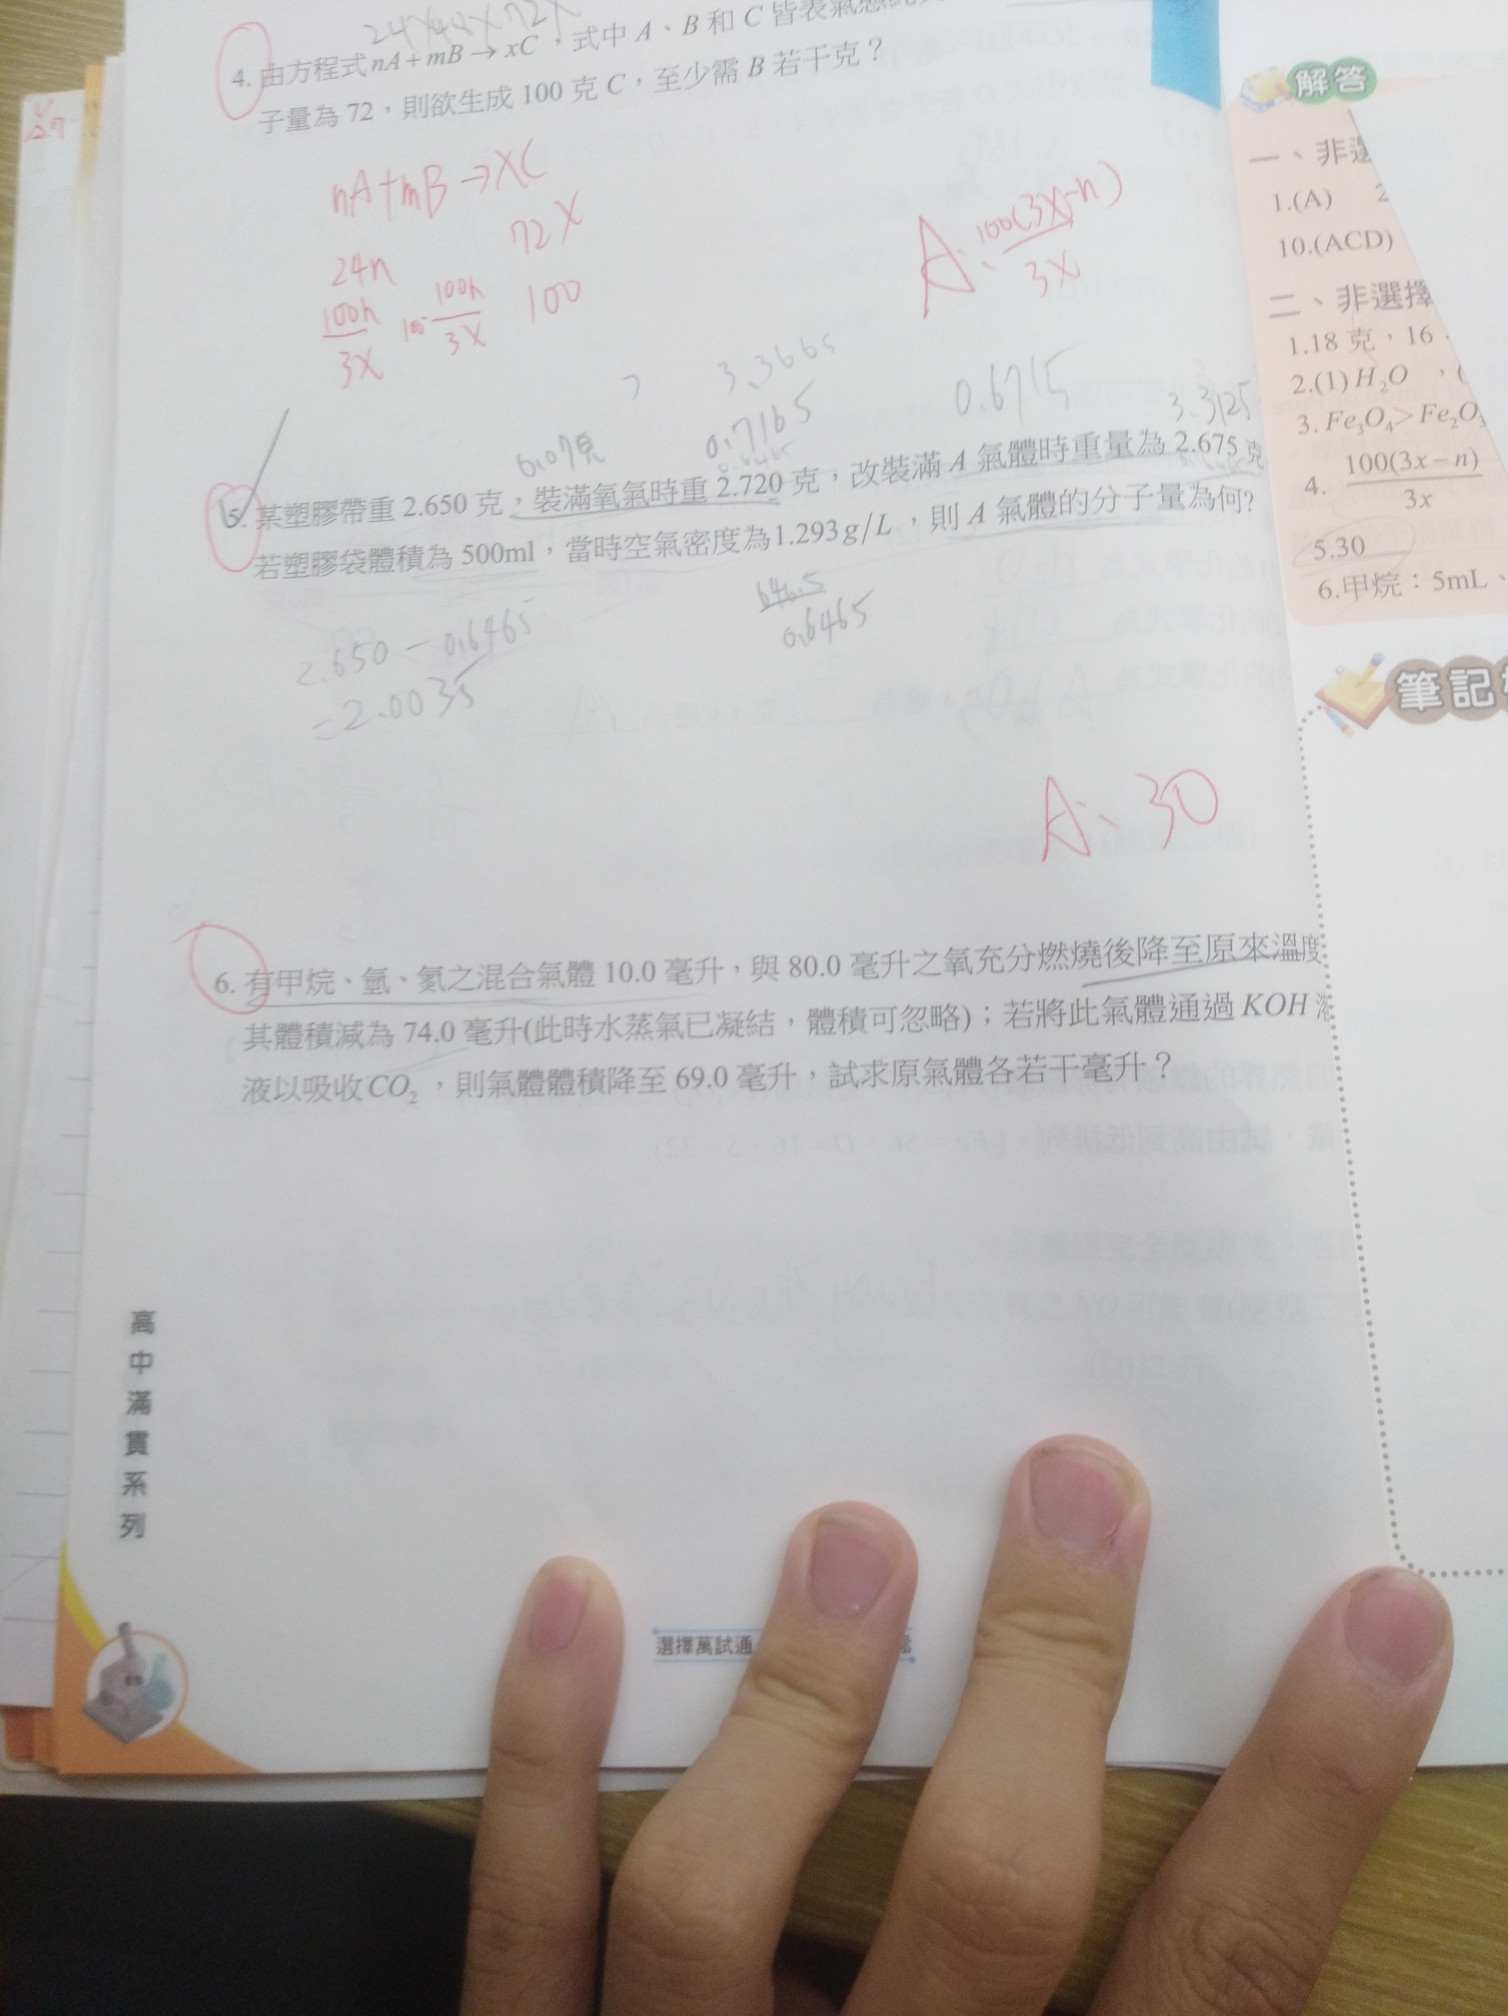 24×48×72×
4. 由方程式nA+mB→xC,式中A、B和C皆表氣態
子量為72,則欲生成100克C,至少需B若干克?
nA+mB→XC
24n 72X
100n/3X 100-100n/3X 100
A: 100(3X-n)/3X
3.3665
0.07克 0.7165 0.6715 3.3125
5. 某塑膠帶重2.650克,裝滿氧氣時重2.720克,改裝滿A氣體時重量為2.675克
若塑膠袋體積為500ml,當時空氣密度為1.293g/L,則A氣體的分子量為何?
646.5
0.6465
2.650-0.6465
=2.0035
A: 30
6. 有甲烷、氫、氦之混合氣體10.0毫升,與80.0毫升之氧充分燃燒後降至原來溫度
其體積減為74.0毫升(此時水蒸氣已凝結,體積可忽略);若將此氣體通過KOH溶
液以吸收CO₂,則氣體體積降至69.0毫升,試求原氣體各若干毫升?
高中滿貫系列
選擇萬試通
解答
一、非選
1.(A) 2
10.(ACD)
二、非選擇
1.18克,16
2.(1)H₂O ,(
3.Fe₃O₄>Fe₂O₃
4. 100(3x-n)/3x
5.30
6.甲烷:5mL、
筆記